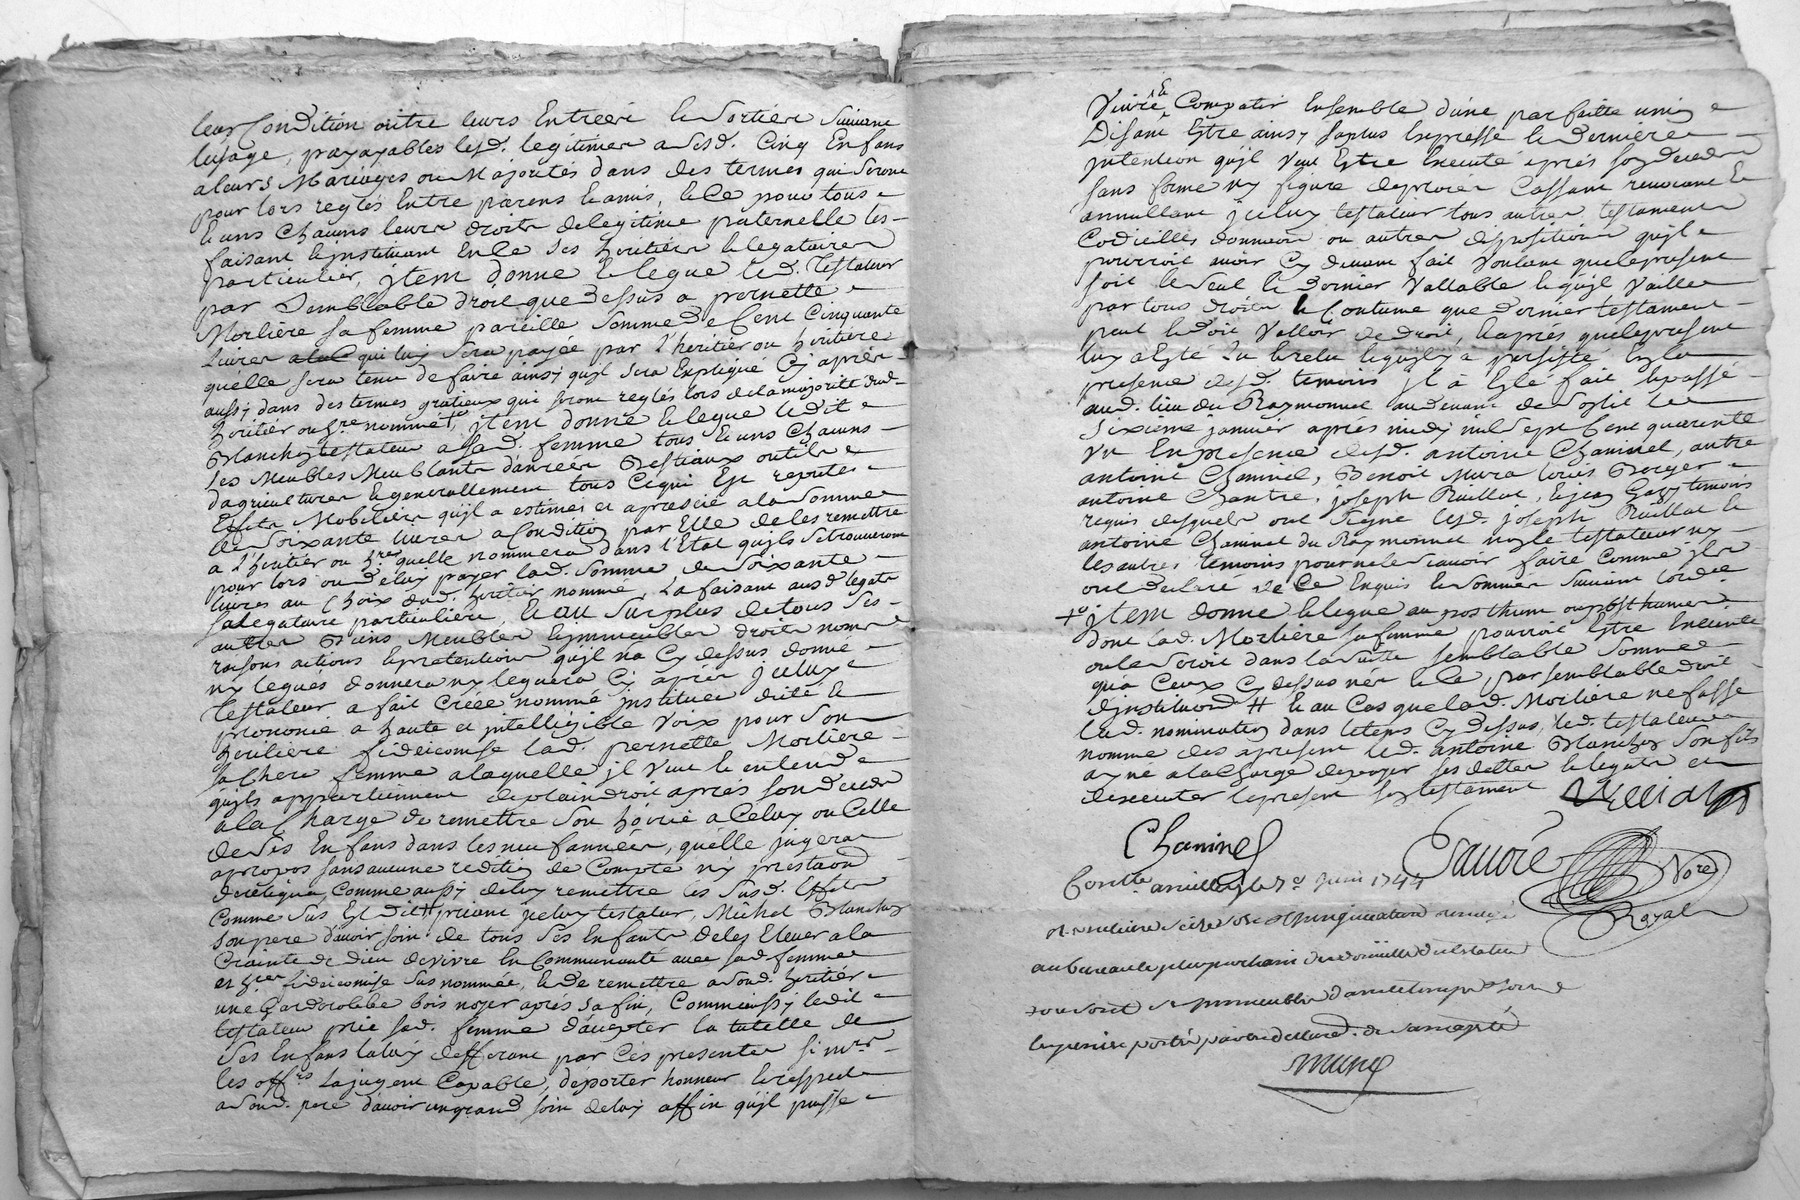 leur Condition outre leurs Entreée & Sortiée Suivant
lusage, payayables lesd. legitimes a sesd. Cinq Enfans
a leurs Mariages ou Majorités dans des termes qui seront
pour lors reglés Entre parens & amis, & ce pour tous
& uns Chacuns leurs droits de legitime paternelle les
faisant & instituant En ce ses heritiers & legataires
particulier, jtem donne & legue led. Testateur
par Semblable droit que dessus a pernette
Morliere sa femme pareille Somme de Cent Cinquante
Livres qui luy Sera payée par l'heritier ou heritiere
quelle sera tenu de faire ainsy quil Sera Expliqué Cy après
aussy dans des termes gratieux qui seront reglés lors de la majorité dud.
heritier ou hre nommét, jtem donne & legue ledit
Blanchoy testateur a sad. femme tous & uns Chacuns
ses Meubles Meublants danrées Bestiaux outils
dagriculture & generallement tous Cequi Est reputés
Effets Mobiliers quil a estimés et aprecié a la Somme
de Soixante livres a Condition par Elle de les remettre
a l'heritier ou hre quelle nommera dans l'Etat quils Se trouveront
pour lors ou de luy payer lad. Somme de Soixante
livres au Choix dud. heritier nommé, La faisant ausd. legats
sa legataire particuliere, & au Surplus de tous Ses
autres Biens Meubles & jmmeubles droits noms
raisons actions & pretentions quil na Cy dessus donné
ny legués donnera ny leguera Cy après jceluy
Testateur a fait Créée nommé jnstituée dicté &
prononcé a haute et jntelligible Voix pour Son
heritiere fideicomise lad. pernette Morliere
sa Chere femme a laquelle jl Veut & entend
quils appartiennent de plain droit après son deceds
a la Charge de remettre Son hoirie a Celuy ou Celle
de Ses Enfans dans les neuf années, quélle jugera
apropos sans aucune reditio de Compte ny prestaon
de reliqua, Comme aussy de luy remettre les Susd. Effets
Comme Sus Est dit # priant jceluy testateur, Michel Blanchoy
son pere d'avoir soin de tous Ses Enfants de les Elever a la
Crainte de Dieu de vivre En Communauté avec sad. femme
et hre fideicomise Sus nommée, & de remettre a sond. heritier
une Garderobbe bois noyer après sa fin, Comme aussy ledit
testateur prie sad. femme d'accepter la tutelle de
Ses Enfans la luy defferant par Ces presentes si mrs
les offrs La jugent Capable, de porter honneur & respect
a sond. pere d'avoir un grand soin de luy affin quil puisse
Vivre & Compatir Ensemble d'une parfaite union
Disant Estre ainsy sa plus Expresse & derniere
jntention quil Veut Estre Executé après son deceds
sans forme ny figure de procés Cassant revocant &
annullant jceluy testateur tous autres testaments
Codicilles donnaons ou autres dispositions quil
pourroit avoir Cy devant fait Voulant que le present
soit le Seul & Dernier Vallable & quil Vaille
par tous droits & Coutume que dernier testament
peut & doit Valloir de droit, & après que le present
luy a Esté Lu & relu & quily a persisté En la
presence desd. temoins jl a Esté fait & passé
aud. lieu du Raymonnet au devant de Logis le
Sixieme janvier après midy mil Sept Cent quarente
un En presence desd. antoine Chaminel, autre
antoine Chaminel, Benoit Mura Loüis Berger
antoine Chantre, joseph Ruillat, & jean Gazy temoins
requis desquels ont Signé lesd. joseph Ruillat &
antoine Chaminel du Raymonnet non le testateur ny
les autres temoins pour ne le Scavoir faire Comme jls
ont declaré de Ce Enquis & Sommés Suivant lordce
jtem donne & legue au posthume ou posthumes
dont lad. Morliere sa femme pourroit Estre Enceinte
ou le Seroit dans la Suitte Semblable Somme
qua Ceux Cy dessus nés & Ce par semblable droit
d'jnstitution # & au Cas que lad. Morliere ne fasse
lad. nomination dans le tems Cy dessus, led. testateur
nomme des apresent led. antoine Blanchoy Son fils
ayné a la Charge de payer ses dettes & legats et
d'executer le present son testament
Chaminel
Contle a le 7e Juin 1744
Royal
au bureau le plus prochain du domicille du testateur